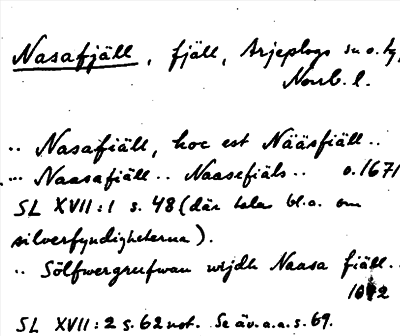 Nasafjäll, fjäll, Arjeplogs sn o. tg,
Norrb. l.
.. Nasafiäll, hoc est Nääsfiäll ..
... Naasafiäll .. Naasefiäls .. o. 1671
SL XVII:1 s. 48 (där talas bl.a. om
silverfyndigheterna).
.. Sölfwergrufwan wijdh Naasa fiäll ..
SL XVII:2 s. 62 not. Se äv. a.a. s. 69.